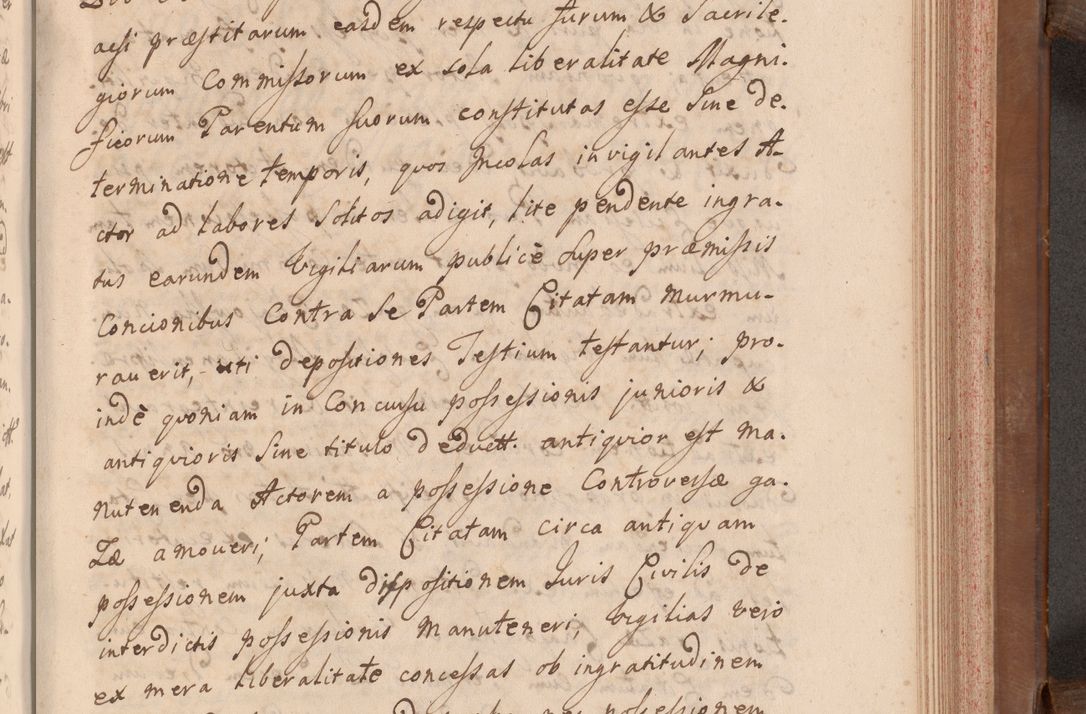 acsi præstitarum easdem respectu furum & Sacrile-
giorum Commissorum ex sola liberalitate Magni-
ficorum Parentum suorum constitutas esse Sine de-
terminatione temporis, quos Incolas invigilantes A-
ctor ad labores Solitos adigit, lite pendente ingra-
tus earundem Vigiliarum publicè super præmissis
Concionibus Contra se Partem Citatam murmu-
raverit, uti depositiones Testium testantur; pro-
indè quoniam in Concursu possessionis junioris &
antiquioris Sine titulo deductt. antiquior est ma-
nutenenda Actorem a possessione Controversæ ga-
zæ amoveri; Partem Citatam circa antiquam
possessionem juxta dispositionem Juris Civilis de
interdictis possessionis manuteneri, Vigilias vero
ex mera liberalitate concessas ob ingratitudinem
possessionem